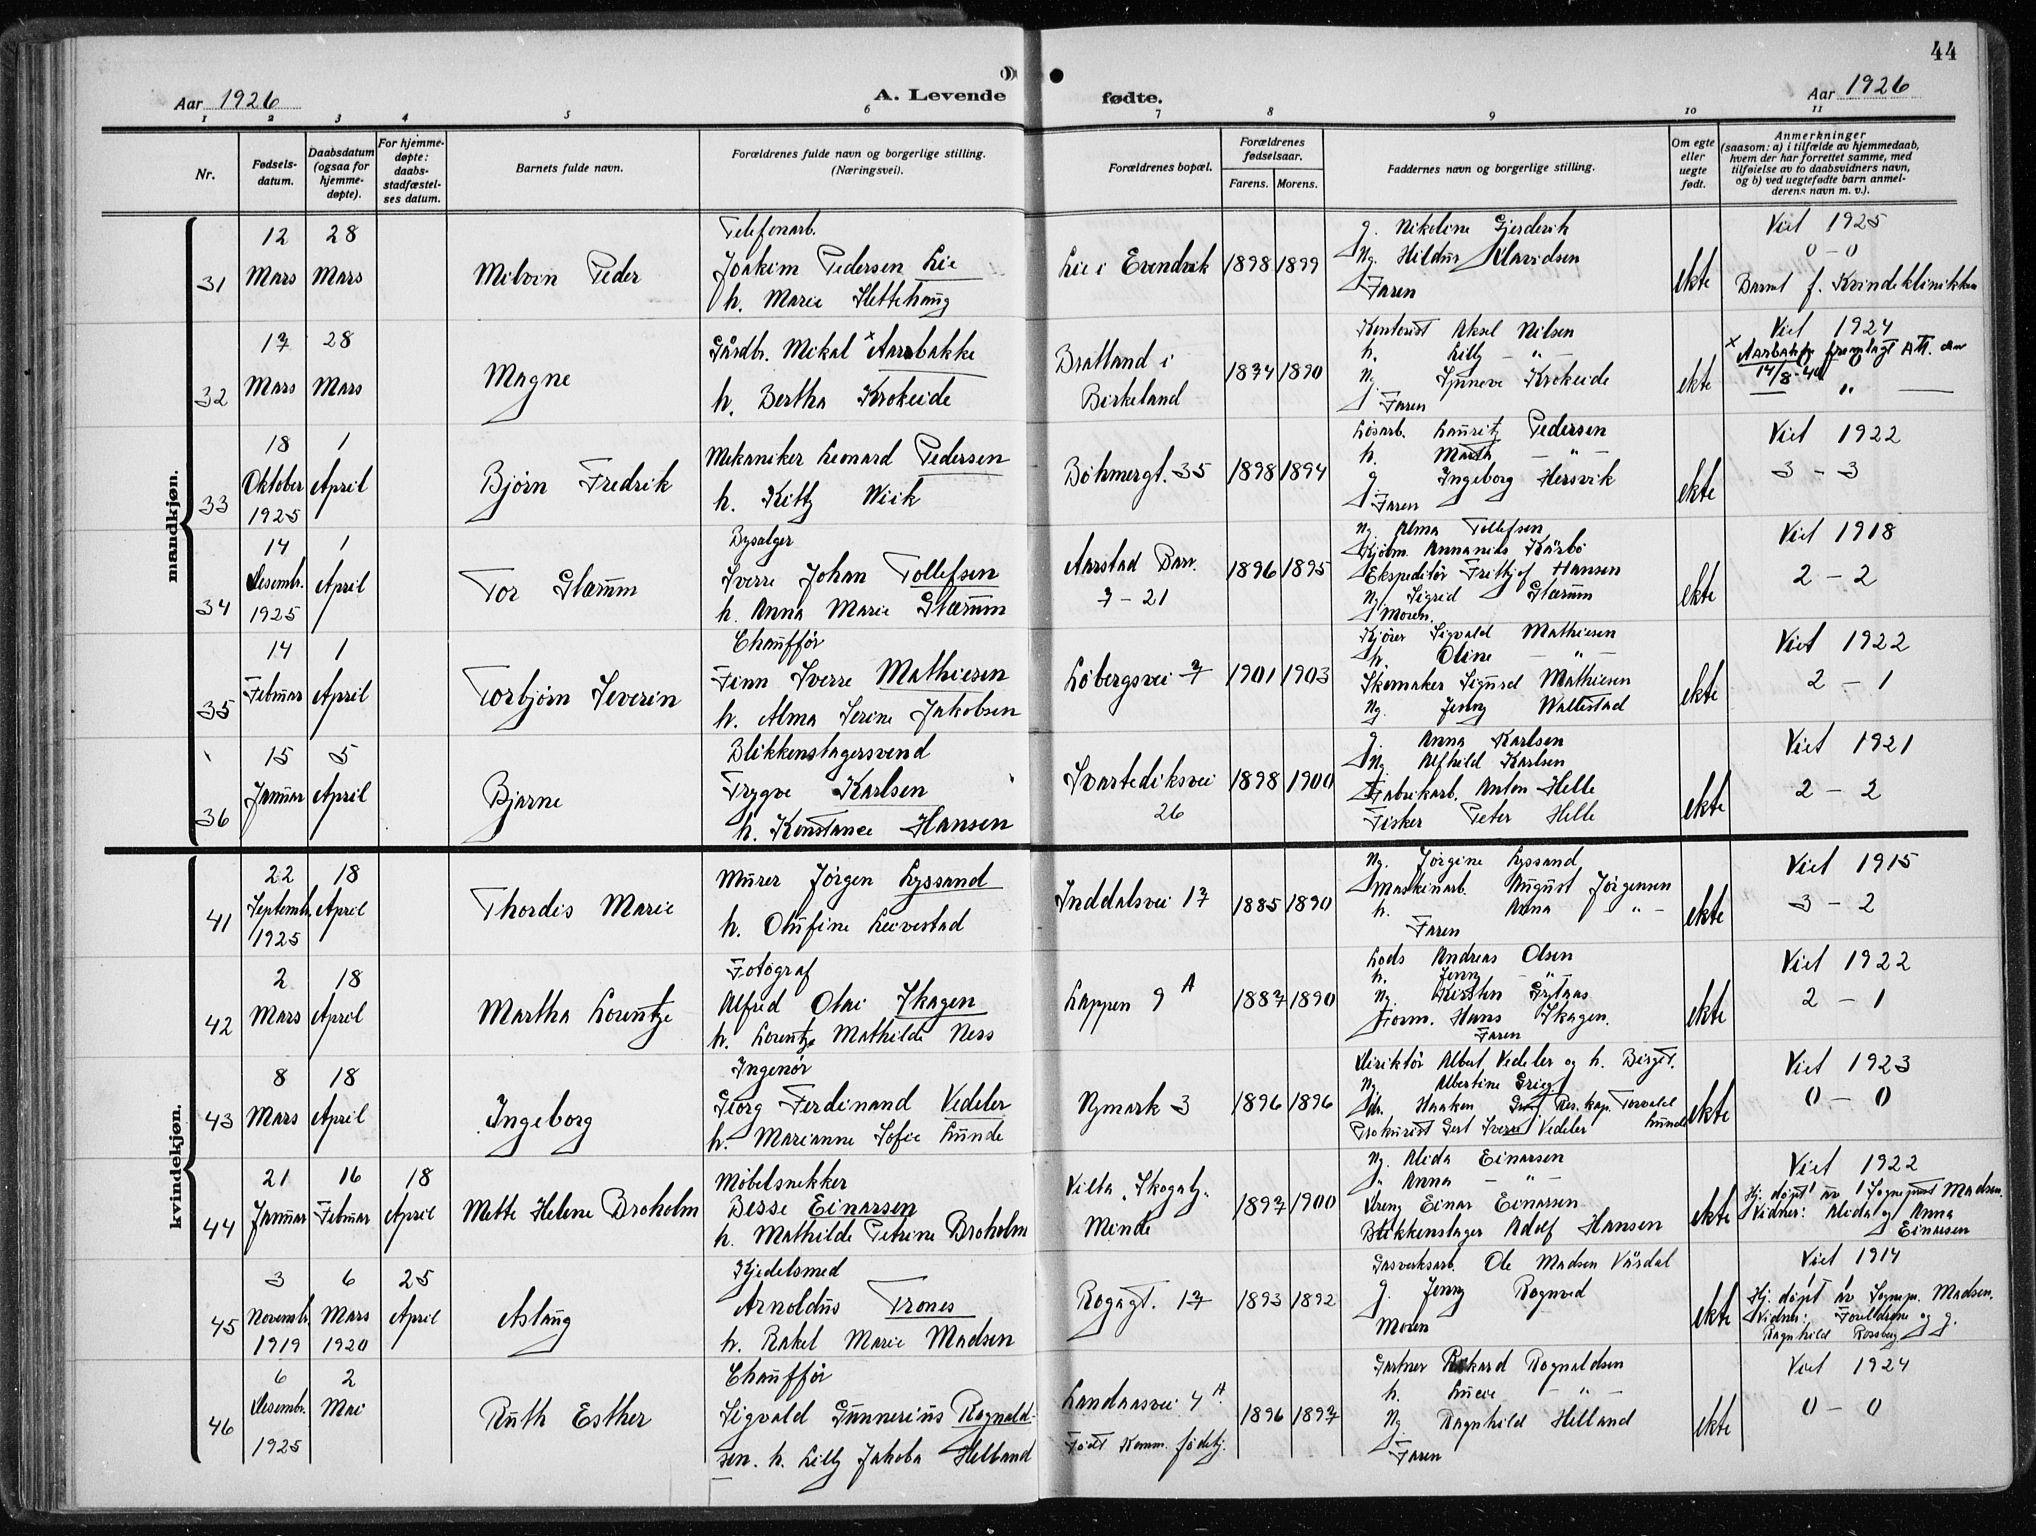 44
Aar 1926
A. Levende fødte.
Aar 1926
1 2 3 4 5 6 7 8 9 10 11
Nr.
Fødsels-
datum.
Daabsdatum
(ogsaa for
hjemme-
døpte).
For hjemme-
døpte:
daabs-
stadfæstel-
ses datum.
Barnets fulde navn.
Forældrenes fulde navn og borgerlige stilling.
(Næringsvei).
Forældrenes bopæl.
Forældrenes
fødselsaar.
Farens. Morens.
Faddernes navn og borgerlige stilling.
Om egte
eller
uegte
født.
Anmerkninger
(saasom: a) i tilfælde av hjemmedaab,
hvem der har forrettet samme, med
tilføielse av to daabsvidners navn,
og b) ved uegtefødte barn anmel-
derens navn m. v.).
mandkjøn.
31
12
Mars
28
Mars
Milvin Peder
Telefonarb.
Joakim Pedersen Lie
h. Marie Slettehaug
Lie i Evendvik
1898 1899
g. Nikoline Gjerdevik
Ng. Hildur Davidsen
Faren
ekte
Viet 1925
0 - 0
Barnet f. Kvindeklinikken
32
17
Mars
28
Mars
Magne
Gårdbr. Mikal x Aarsbakke
h. Bertha Krokeide
Bratland i
Birkeland
1874 1890
Kontorist Aksel Nilsen
h. Lilly - " -
Ng. Synneve Krokeide
Faren
ekte
Viet 1924
x Aarbakke fremlagt Att.
14/8-40
"
33
18
Oktober
1925
1
April
Bjørn Fredrik
Mekaniker Leonard Pedersen
h. Kitty Wiik
Bøhmergt. 35
1898 1894
Løsarb. Lauritz Pedersen
h. Marth - " -
g. Ingeborg Hersvik
Faren
ekte
Viet 1922
3 - 3
34
14
Desembr.
1925
1
April
Tor Glærum
Bysælger
Sverre Johan Tollefsen
h. Anna Marie Glærum
Aarstad Barr.
7 - 21
1896 1895
Ng. Alma Tollefsen
Kjøbm. Annanias Kårbø
Ekspeditør Fritjof Hansen
Ng. Sigrid Glærum
Moren.
ekte
Viet 1918
2 - 2
35
14
Februar
1
April
Torbjørn Severin
Chauffør
Finn Sverre Mathiesen
h. Alma Serine Jakobsen
Løbergsvei 7
1901 1903
Kjører Sigvald Mathiesen
h. Oline - " -
Skomaker Sigurd Mathiesen
Ng. Jenny Wallestad
ekte
Viet 1922
2 - 1
36
15
Januar
5
April
Bjarne
Blikkenslagersvend
Trygve Karlsen
h. Konstance Hansen
Svartediksvei
26
1898 1900
g. Anna Karlsen
Ng. Alfhild Karlsen
Fabrikarb. Anton Helle
Fisker Peter Helle
ekte
Viet 1921
2 - 2
kvindekjøn.
41
22
Septembr.
1925
18
April
Thordis Marie
Murer Jørgen Lyssand
h. Olufine Leivestad
Inddalsvei 17
1885 1890
Ng. Jørgine Lyssand
Maskinarb. August Jørgensen
h. Anna - " -
Faren
ekte
Viet 1915
3 - 2
42
2
Mars
18
April
Martha Lorentze
Fotograf
Alfred Olai Skagen
h. Lorentze Mathilde Ness
Lappen 9 A
1887 1890
Lods Andreas Olsen
h. Jenny - " -
Ng. Kirsten
Form. Hans Skagen.
Faren
ekte
Viet 1922
2 - 1
43
8
Mars
18
April
Ingeborg
Ingenør
Georg Ferdinand Vedeler
h. Marianne Sofie Lunde
Nymark 3
1896 1896
Direktør Albert Vedeler og h. Birgit.
Ng. Albertine Grieg
Haaken Res.kap. Torvald
Prokurist Gert Sverre Vedeler Lunde
ekte
Viet 1923
0 - 0
44
21
Januar
16
Februar
18
April
Mette Helene Broholm
Møbelsnekker
Besse Einarsen
h. Mathilde Petrine Broholm
Villa "Skogaly"
Minde
1897 1900
Ng. Alida Einarsen
" Anna - " -
Dreng Einar Einarsen
Blikkenslager Adolf Hansen
ekte
Viet 1922
Hj. døpt av Sogneprest Madsen.
Vidner: Alida og Anna
Einarsen
45
3
Novembr.
1919
6
Mars
1920
25
April
Aslaug
Kjedelsmed
Arnoldus Trones
h. Rakel Marie Madsen
Rogagt. 17
1893 1892
Gasverksarb. Ole Madsen Vårdal
g. Jenny Rognved
Moren
ekte
Viet 1914
Hj. døpt av Sognepr. Madsen.
Vidner: Foreldrene og g.
Ragnhild Rossberg
46
6
Desembr.
1925
2
Mai
Ruth Esther
Chauffør
Sigvald Gunnerius Rognald-
sen. h. Lilly Jakoba Helland
Landaasvei 4 A
Født Komm. fødehj.
1896 1897
Gartner Rikard Rognaldsen
h. Lucie - " -
Ng. Ragnhild Helland
Faren
ekte
Viet 1924
0 - 0